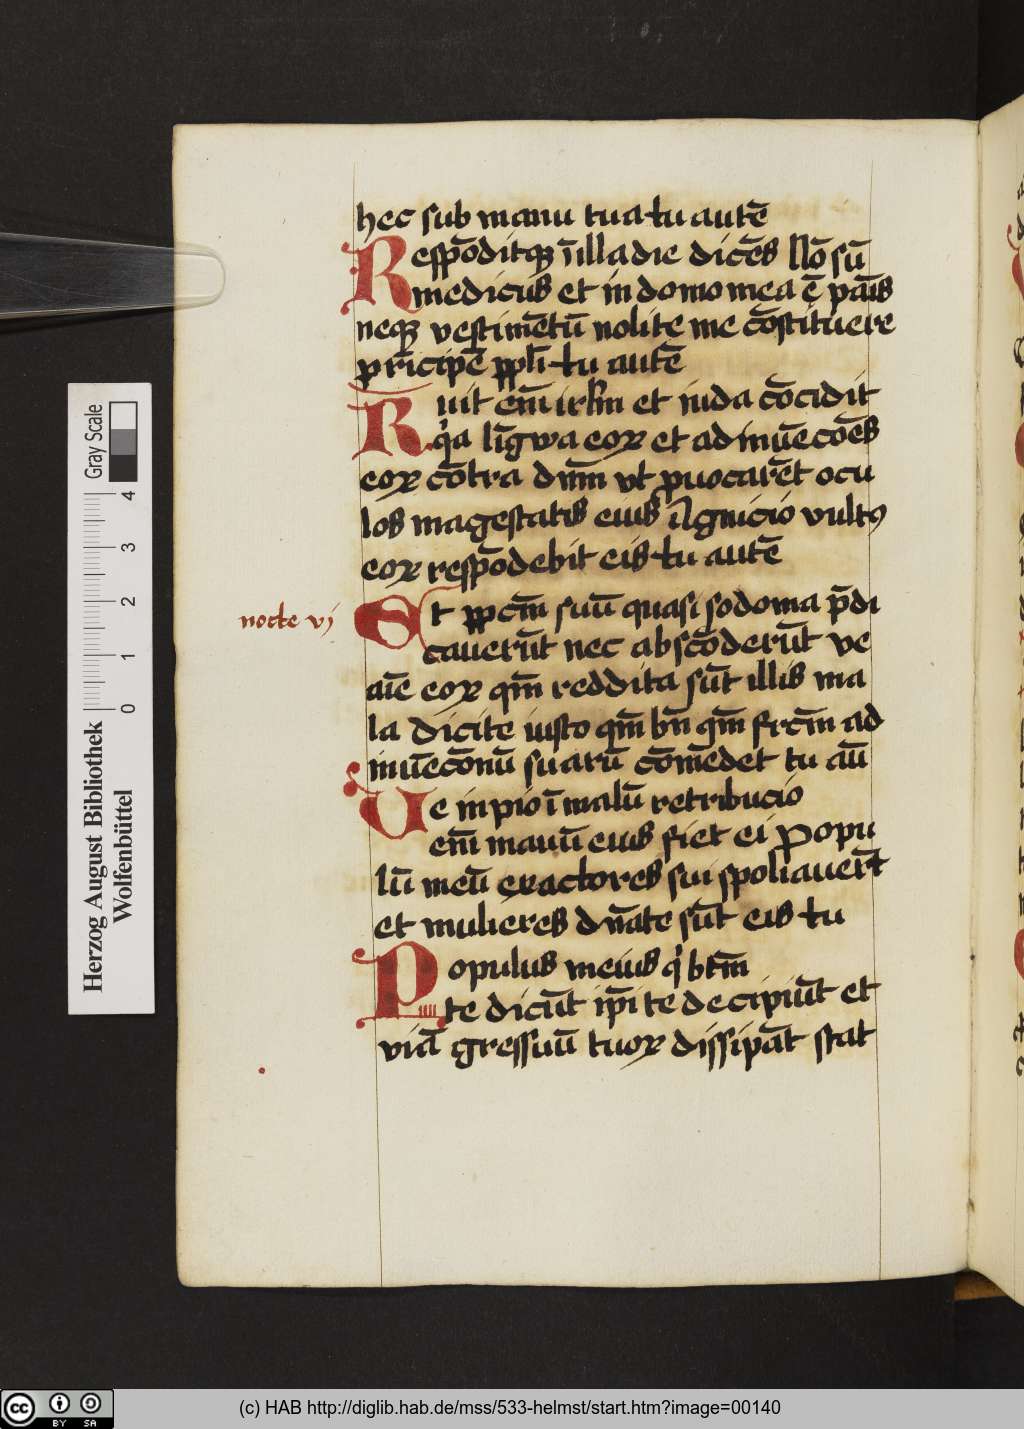 hec sub manu tua tu autē
Respōditqꝫ ī illa die dicēs Nō sū
medicus et in domo mea ē pāis
neqꝫ vestimētū nolite me cōstituere
prīcipē ppl̄i tu autē
Ruit em̄ irlm̄ et iuda cōcidit
qꝛa līgwa eoꝝ et adinuēcōēs
eoꝝ cōtra dnm̄ vt ꝓuocarēt ocu
los magestatis eius Agnicio vultꝰ
eoꝝ respōdebit eis tu autē
nocte vj
Et ppcm̄ suū quasi sodoma p̄di
cauerūt nec abscōderūt ve
aīe eoꝝ qm̄ reddita sūt illis ma
la Dicite iusto qm̄ bn̄ qm̄ frcm̄ ad
inuēcōnū suarū cōmedet tu aū
Ue inpio ī malū retribucio
em̄ manuū eius fiet ei Popu
lū meū exactores sui spoliauerūt
et mulieres dn̄ate sūt eis tu
Populus meus qͥ btm̄
te dicūt ip̄i te decipiūt et
viā gressuū tuoꝝ dissipāt stat
Herzog August Bibliothek
Wolfenbüttel
0 1 2 3 4
Gray Scale
cc BY SA
(c) HAB http://diglib.hab.de/mss/533-helmst/start.htm?image=00140